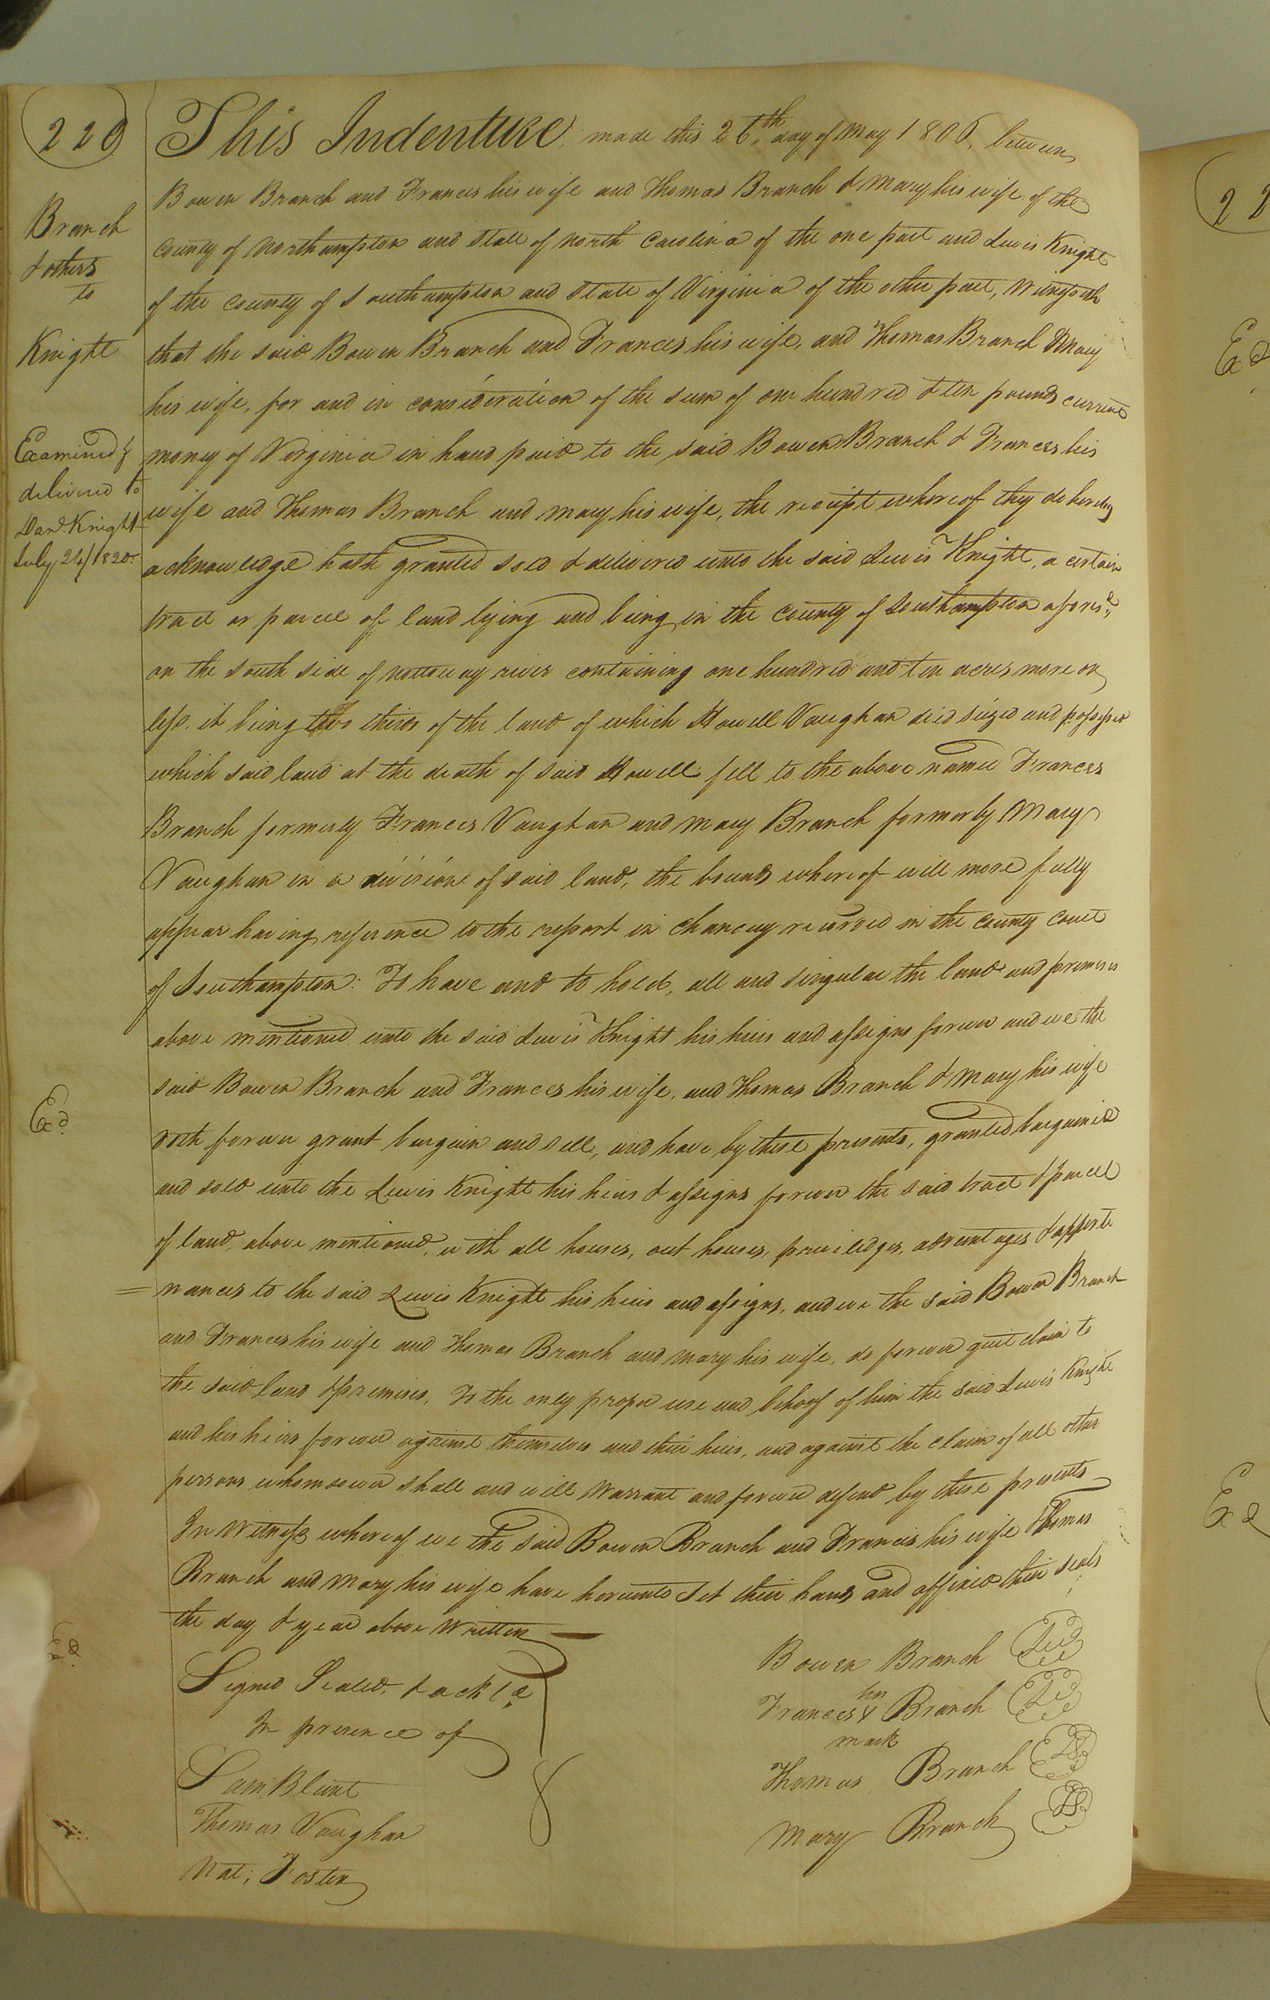 220
Branch
& others
to
Knight
Examined &
delivered to
Dan.d Knight
July 24/1820
Ex.d
This Indenture made this 26.th day of May 1806, between
Bowen Branch and Frances his wife and Thomas Branch & Mary his wife of the
County of Northampton and State of North Carolina of the one part and Lewis Knight
of the County of Southampton and State of Virginia of the other part, Witnesseth
that the said Bowen Branch and Frances his wife, and Thomas Branch & Mary
his wife, for and in consideration of the sum of one hundred & ten pounds current
money of Virginia in hand paid to the said Bowen Branch & Frances his
wife and Thomas Branch and Mary his wife, the receipt whereof they do hereby
acknowledge hath granted sold & delivered unto the said Lewis Knight, a certain
tract or parcel of land lying and being in the County of Southampton afores.d
on the South side of Nottoway river containing one hundred and ten acres more or
less. it being two thirds of the land of which Howell Vaughan died seized and possessed
which said land at the death of said Howell fell to the above named Frances
Branch formerly Frances Vaughan and Mary Branch formerly Mary
Vaughan in a division of said land, the bounds whereof will more fully
appear having reference to the report in Chancery recorded in the County Court
of Southampton: To have and to hold, all and singular the land and premises
above mentioned unto the said Lewis Knight his heirs and assigns forever and we the
said Bowen Branch and Frances his wife, and Thomas Branch & Mary his wife
doth forever grant bargain and sell, and have by these presents, granted bargained
and sold unto the Lewis Knight his heirs & assigns forever the said tract & parcel
of land, above mentioned, with all houses, out houses, priviledges, advantages & apperte
= nances to the said Lewis Knight his heirs and assigns, and we the said Bowen Branch
and Frances his wife and Thomas Branch and Mary his wife, do forever quit claim to
the said land & premises, To the only proper use and behoof of him the said Lewis Knight
and his heirs forever against themselves and their heirs, and against the claim of all other
persons whomsoever shall and will warrant and forever defend by these presents
In Witness whereof we the said Bowen Branch and Frances his wife & Thomas
Branch and Mary his wife have hereunto set their hands and affixed their seals
the day & year above written
Signed Sealed, & ack.l'd
In presence of
Sam. Blunt
Thomas Vaughan
Nat: Foster
Bowen Branch LS
her
Frances X Branch LS
mark
Thomas Branch LS
Mary Branch LS